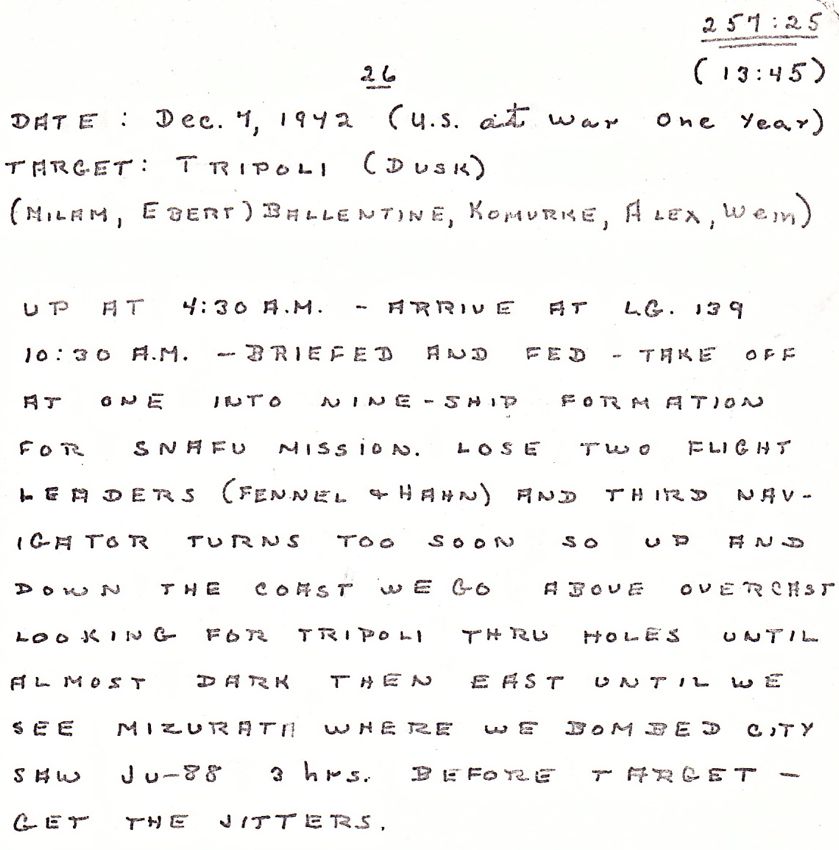 257:25
26 (13:45)
DATE: Dec. 7, 1942 (U.S. at war one year)
TARGET: TRIPOLI (DUSK)
(MILAM, EBERT) BALLENTINE, KOMURKE, ALEX, Wem)
UP AT 4:30 A.M. - ARRIVE AT L.G. 139
10:30 A.M. - BRIEFED AND FED - TAKE OFF
AT ONE INTO NINE-SHIP FORMATION
FOR SNAFU MISSION. LOSE TWO FLIGHT
LEADERS (FENNEL & HAHN) AND THIRD NAV-
IGATOR TURNS TOO SOON SO UP AND
DOWN THE COAST WE GO ABOVE OVERCAST
LOOKING FOR TRIPOLI THRU HOLES UNTIL
ALMOST DARK THEN EAST UNTIL WE
SEE MIZURATA WHERE WE BOMBED CITY
SAW Ju-88 3 hrs. BEFORE TARGET -
GET THE JITTERS.